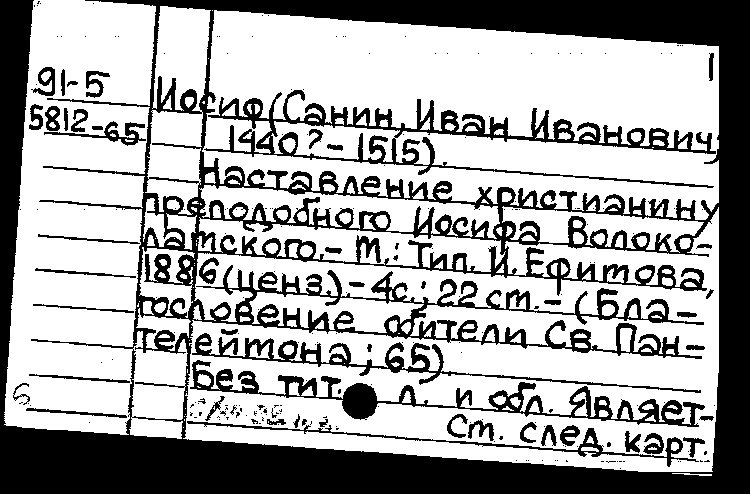 1
91-5
5812-65
Иосиф (Санин, Иван Иванович;
1440?-1515).
Наставление христианину
преподобного Иосифа Волоко-
ламского.- М.: Тип. И. Ефимова,
1886 (ценз.).- 4с.; 22 см.- (Бла-
гословение обители Св. Пан-
телеймона; 65).
Без тит. л. и обл. Являет-
См. след. карт.
Б